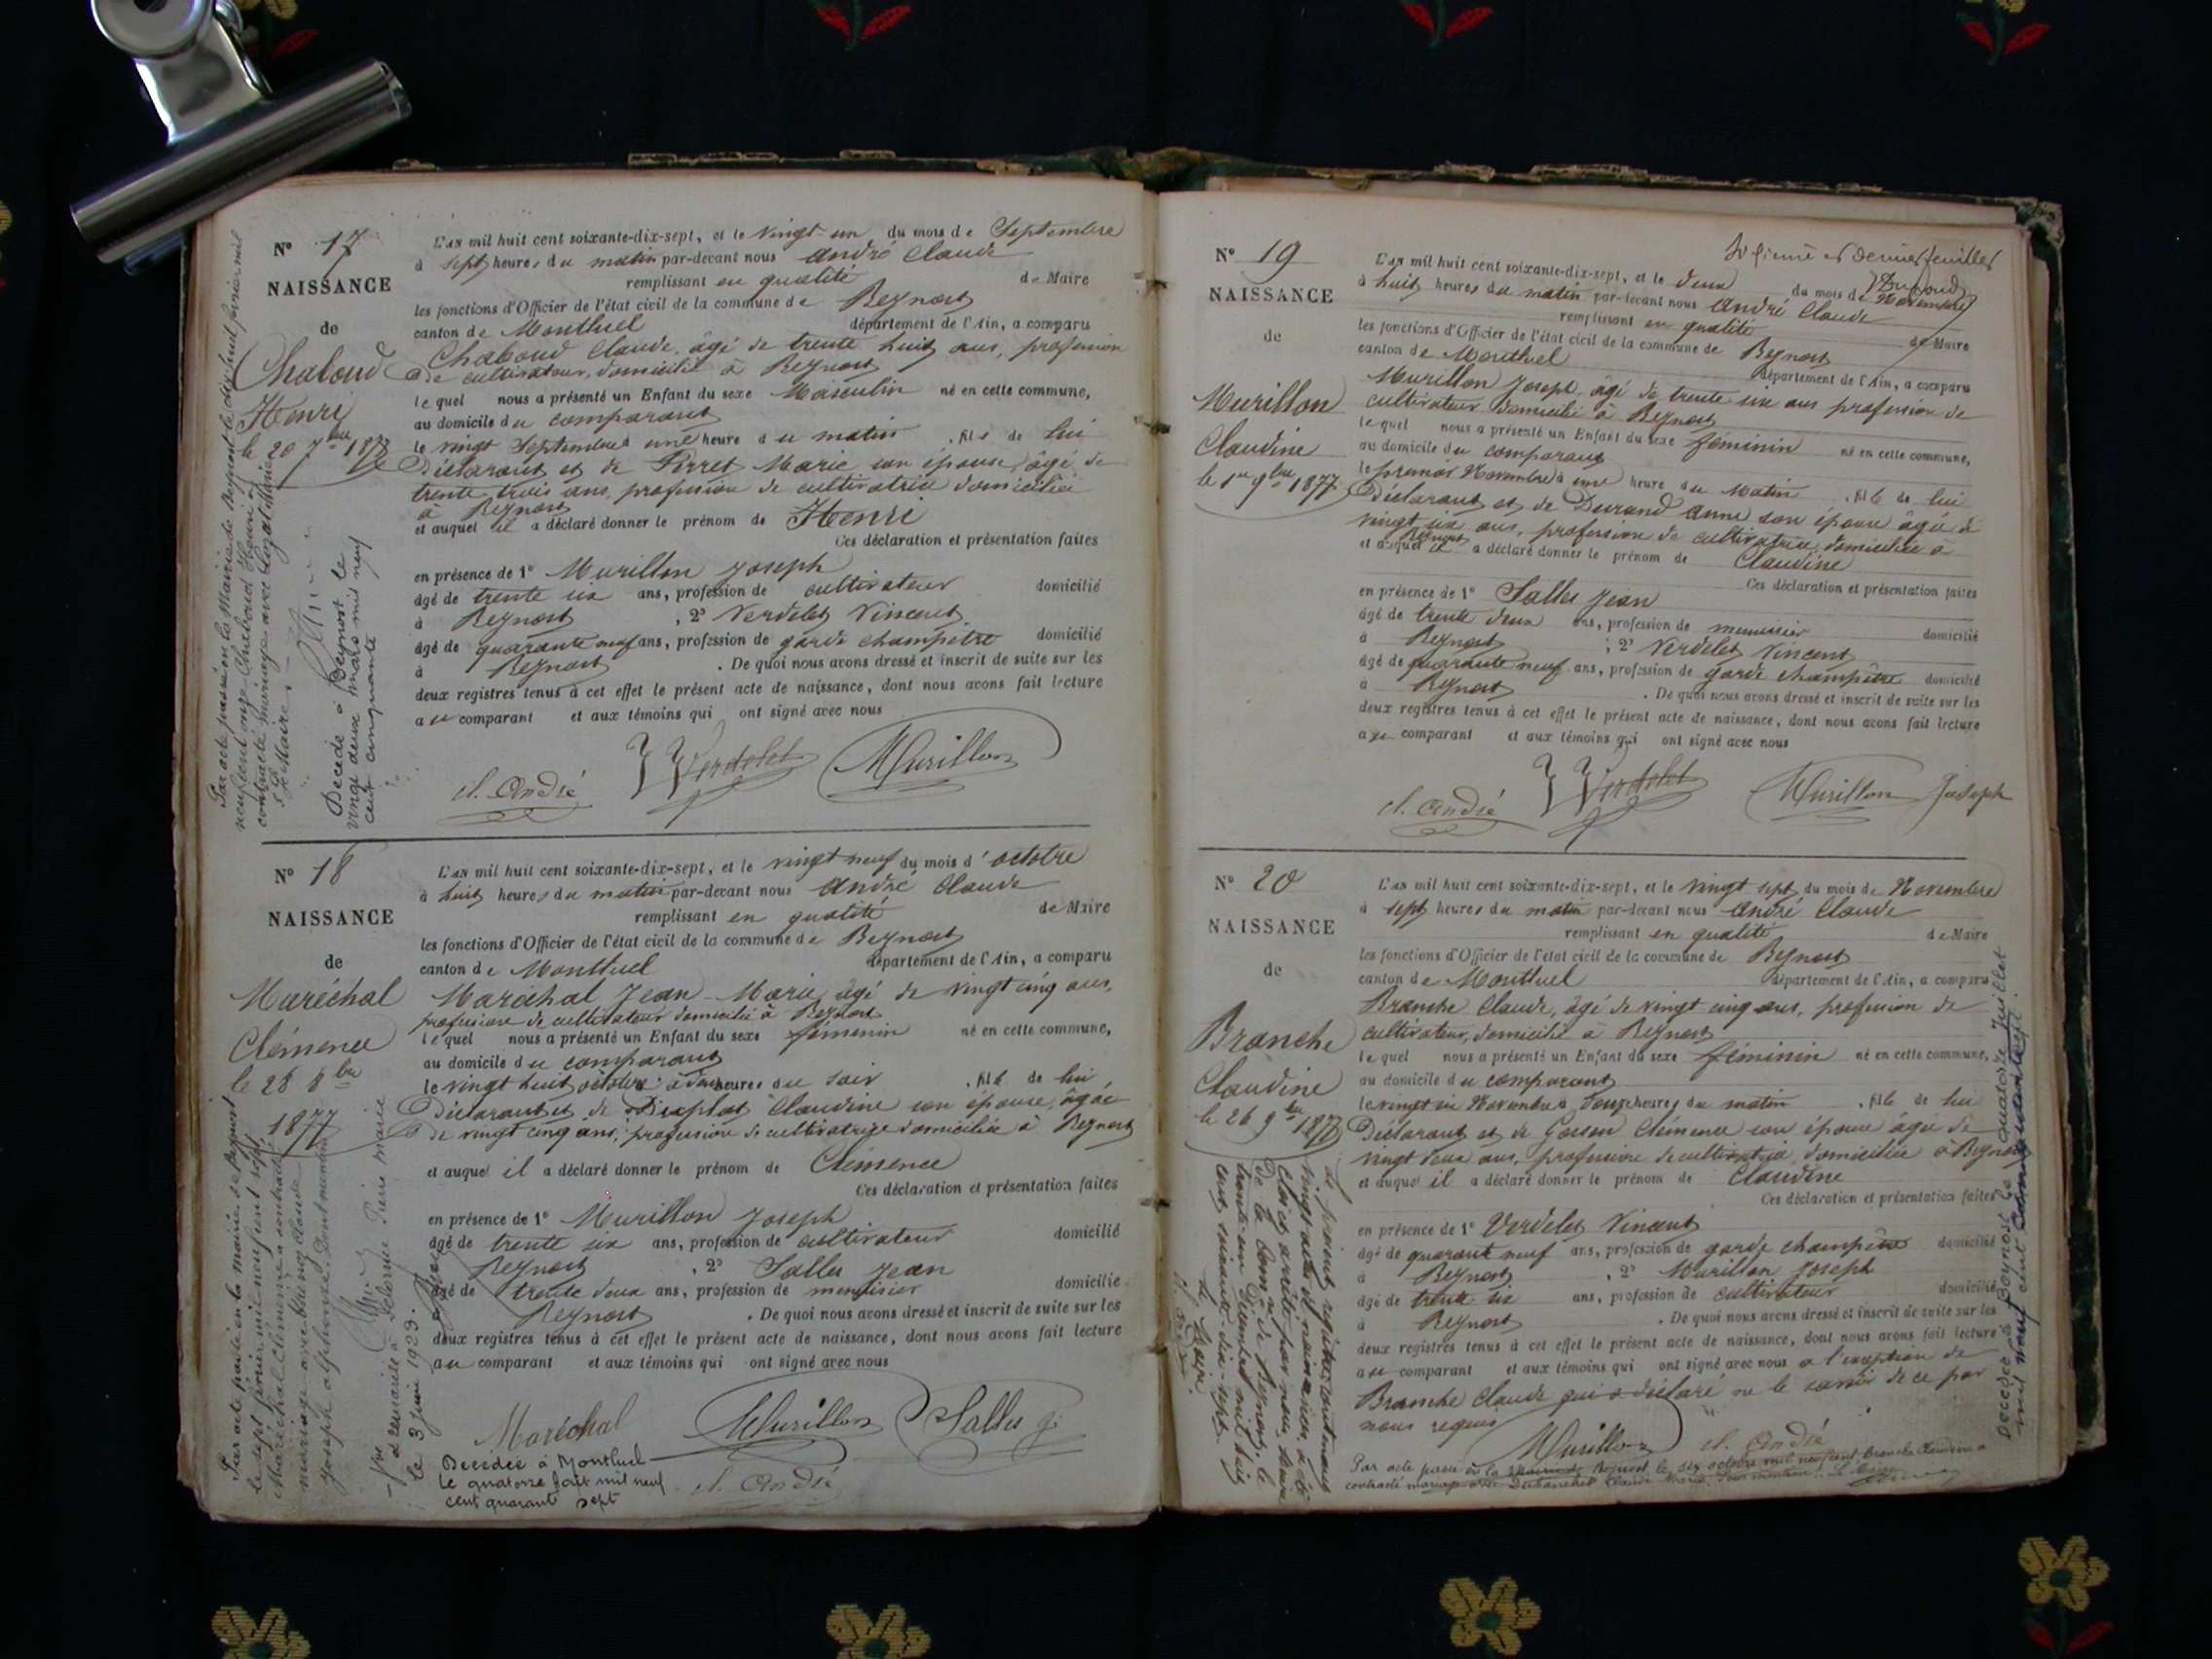 N° 17
NAISSANCE
de
Chaboud
Henri
le 20 7bre 1877
L'AN mil huit cent soixante-dix-sept, et le vingt un du mois de Septembre
à sept heures du matin par-devant nous André Claude
remplissant en qualité de Maire
les fonctions d'Officier de l'état civil de la commune de Beynost
canton de Montluel département de l'Ain, a comparu
Chaboud Claude, âgé de trente huit ans, profession
de cultivateur, domicilié à Beynost
lequel nous a présenté un Enfant du sexe Masculin né en cette commune,
au domicile du comparant
le vingt Septembre à une heure du matin, fils de lui
Déclarant et de Perret Marie son épouse, âgé de
trente trois ans, profession de cultivatrice domiciliée
à Beynost
et auquel il a déclaré donner le prénom de Henri
Ces déclaration et présentation faites
en présence de 1° Murillon Joseph
âgé de trente six ans, profession de cultivateur domicilié
à Beynost, 2° Verdelet Vincent
âgé de quarante neuf ans, profession de garde champêtre domicilié
à Beynost. De quoi nous avons dressé et inscrit de suite sur les
deux registres tenus à cet effet le présent acte de naissance, dont nous avons fait lecture
au comparant et aux témoins qui ont signé avec nous
cl. andré Verdelet Murillon
Par acte passé en la Mairie de Beynost le dix huit février mil
neuf cent onze Chaboud Henri a
contracté mariage avec Marie
Le Maire
Décédé à Beynost le
vingt deux mars mil neuf
cent cinquante
N° 18
NAISSANCE
de
Maréchal
Clémence
le 28 8bre
1877
L'AN mil huit cent soixante-dix-sept, et le vingt neuf du mois d'octobre
à huit heures du matin par-devant nous André Claude
remplissant en qualité de Maire
les fonctions d'Officier de l'état civil de la commune de Beynost
canton de Montluel département de l'Ain, a comparu
Maréchal Jean-Marie, âgé de vingt cinq ans,
profession de cultivateur domicilié à Beynost
lequel nous a présenté un Enfant du sexe féminin né en cette commune,
au domicile du comparant
le vingt huit octobre à heures du soir, fille de lui
Déclarant et de Claudine son épouse, âgée
de vingt cinq ans, profession de cultivatrice domiciliée à Beynost
et auquel il a déclaré donner le prénom de Clémence
Ces déclaration et présentation faites
en présence de 1° Murillon Joseph
âgé de trente six ans, profession de cultivateur domicilié
Beynost, 2° Salles Jean
âgé de trente deux ans, profession de menuisier domicilié
Beynost. De quoi nous avons dressé et inscrit de suite sur les
deux registres tenus à cet effet le présent acte de naissance, dont nous avons fait lecture
au comparant et aux témoins qui ont signé avec nous
Maréchal Murillon Salles J
cl. andré
Décédée à Montluel
le quatorze août mil neuf
cent quarante sept
Par acte passé en la mairie de Beynost
le sept février mil neuf cent
Maréchal Clémence a contracté
mariage avec Claude
Joseph Alphonse. Dont mention
le 3 juin 1923.
N° 19
NAISSANCE
de
Murillon
Claudine
le 1er 9bre 1877
L'AN mil huit cent soixante-dix-sept, et le deux du mois de Novembre
à huit heures du matin par-devant nous André Claude
remplissant en qualité de Maire
les fonctions d'Officier de l'état civil de la commune de Beynost
canton de Montluel département de l'Ain, a comparu
Murillon Joseph, âgé de trente six ans profession de
cultivateur domicilié à Beynost
lequel nous a présenté un Enfant du sexe féminin né en cette commune,
au domicile du comparant
le premier Novembre à une heure du Matin, fille de lui
Déclarant et de Durand Anne son épouse âgée de
vingt six ans, profession de cultivatrice, domiciliée à
Beynost
et auquel il a déclaré donner le prénom de Claudine
Ces déclaration et présentation faites
en présence de 1° Salles Jean
âgé de trente deux ans, profession de menuisier domicilié
à Beynost; 2° Verdelet Vincent
âgé de quarante neuf ans, profession de garde champêtre domicilié
à Beynost. De quoi nous avons dressé et inscrit de suite sur les
deux registres tenus à cet effet le présent acte de naissance, dont nous avons fait lecture
au comparant et aux témoins qui ont signé avec nous
cl. andré Verdelet Murillon Joseph
N° 20
NAISSANCE
de
Branche
Claudine
le 26 9bre 1877
L'AN mil huit cent soixante-dix-sept, et le vingt sept du mois de Novembre
à sept heures du matin par-devant nous André Claude
remplissant en qualité de Maire
les fonctions d'Officier de l'état civil de la commune de Beynost
canton de Montluel département de l'Ain, a comparu
Branche Claude, âgé de vingt cinq ans, profession de
cultivateur, domicilié à Beynost
lequel nous a présenté un Enfant du sexe féminin né en cette commune,
au domicile du comparant
le vingt six Novembre à heures du matin, fille de lui
Déclarant et de Clémence son épouse âgée de
vingt deux ans, profession de cultivatrice, domiciliée à Beynost
et auquel il a déclaré donner le prénom de Claudine
Ces déclaration et présentation faites
en présence de 1° Verdelet Vincent
âgé de quarante neuf ans, profession de garde champêtre domicilié
à Beynost, 2° Murillon Joseph
âgé de trente six ans, profession de cultivateur domicilié
à Beynost. De quoi nous avons dressé et inscrit de suite sur les
deux registres tenus à cet effet le présent acte de naissance, dont nous avons fait lecture
au comparant et aux témoins qui ont signé avec nous à l'exception de
Branche Claude qui a déclaré ne le savoir de ce par
nous requis
Murillon cl. andré
Par acte passé en la Mairie de Beynost le six octobre mil neuf cent Branche Claudine a
contracté mariage avec Claude Marie. Le Maire
le présent registre contenant
vingt actes de naissances, a été
clos et arrêté par nous, Maire
de la Com ne de Beynost, le
trente-un Décembre mil huit
cent soixante-dix-sept.
Le Maire.
cl. andré
Décédée à Beynost le quatorze Juillet
mil neuf cent